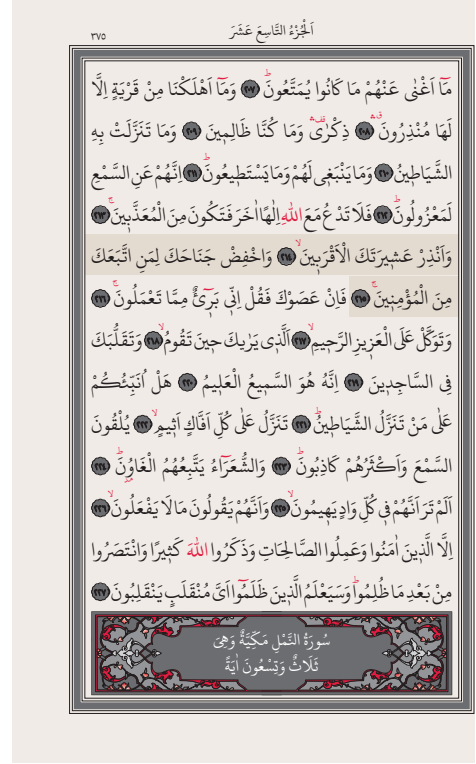 ٣٧٥
اَلْجُزْءُ التَّاسِعَ عَشَرَ
مَٓا اَغْنٰى عَنْهُمْ مَا كَانُوا يُمَتَّعُونَۜ ﴿٢٠٧﴾ وَمَٓا اَهْلَكْنَا مِنْ قَرْيَةٍ اِلَّا
لَهَا مُنْذِرُونَ ﴿٢٠٨﴾ ذِكْرٰى وَمَا كُنَّا ظَالِمِينَ ﴿٢٠٩﴾ وَمَا تَنَزَّلَتْ بِهِ
الشَّيَاطِينُ ﴿٢١٠﴾ وَمَا يَنْبَغِي لَهُمْ وَمَا يَسْتَطِيعُونَۜ ﴿٢١١﴾ اِنَّهُمْ عَنِ السَّمْعِ
لَمَعْزُولُونَۜ ﴿٢١٢﴾ فَلَا تَدْعُ مَعَ اللّٰهِ اِلٰهًا اٰخَرَ فَتَكُونَ مِنَ الْمُعَذَّبِينَۚ ﴿٢١٣﴾
وَاَنْذِرْ عَشِيرَتَكَ الْاَقْرَبِينَۙ ﴿٢١٤﴾ وَاخْفِضْ جَنَاحَكَ لِمَنِ اتَّبَعَكَ
مِنَ الْمُؤْمِنِينَۚ ﴿٢١٥﴾ فَاِنْ عَصَوْكَ فَقُلْ اِنِّي بَرِٓيءٌ مِمَّا تَعْمَلُونَۚ ﴿٢١٦﴾
وَتَوَكَّلْ عَلَى الْعَزِيزِ الرَّحِيمِۙ ﴿٢١٧﴾ اَلَّذِي يَرٰيكَ حِينَ تَقُومُۙ ﴿٢١٨﴾ وَتَقَلُّبَكَ
فِي السَّاجِدِينَ ﴿٢١٩﴾ اِنَّهُ هُوَ السَّمِيعُ الْعَلِيمُ ﴿٢٢٠﴾ هَلْ اُنَبِّئُكُمْ
عَلٰى مَنْ تَنَزَّلُ الشَّيَاطِينُۜ ﴿٢٢١﴾ تَنَزَّلُ عَلٰى كُلِّ اَفَّاكٍ اَثِيمٍۙ ﴿٢٢٢﴾ يُلْقُونَ
السَّمْعَ وَاَكْثَرُهُمْ كَاذِبُونَۜ ﴿٢٢٣﴾ وَالشُّعَرَٓاءُ يَتَّبِعُهُمُ الْغَاوُ۫نَۜ ﴿٢٢٤﴾
اَلَمْ تَرَ اَنَّهُمْ فِي كُلِّ وَادٍ يَهِيمُونَۙ ﴿٢٢٥﴾ وَاَنَّهُمْ يَقُولُونَ مَا لَا يَفْعَلُونَۙ ﴿٢٢٦﴾
اِلَّا الَّذِينَ اٰمَنُوا وَعَمِلُوا الصَّالِحَاتِ وَذَكَرُوا اللّٰهَ كَثِيرًا وَانْتَصَرُوا
مِنْ بَعْدِ مَا ظُلِمُواۜ وَسَيَعْلَمُ الَّذِينَ ظَلَمُٓوا اَيَّ مُنْقَلَبٍ يَنْقَلِبُونَ ﴿٢٢٧﴾
سُورَةُ النَّمْلِ مَكِّيَّةٌ وَهِيَ
ثَلَاثٌ وَتِسْعُونَ اٰيَةً